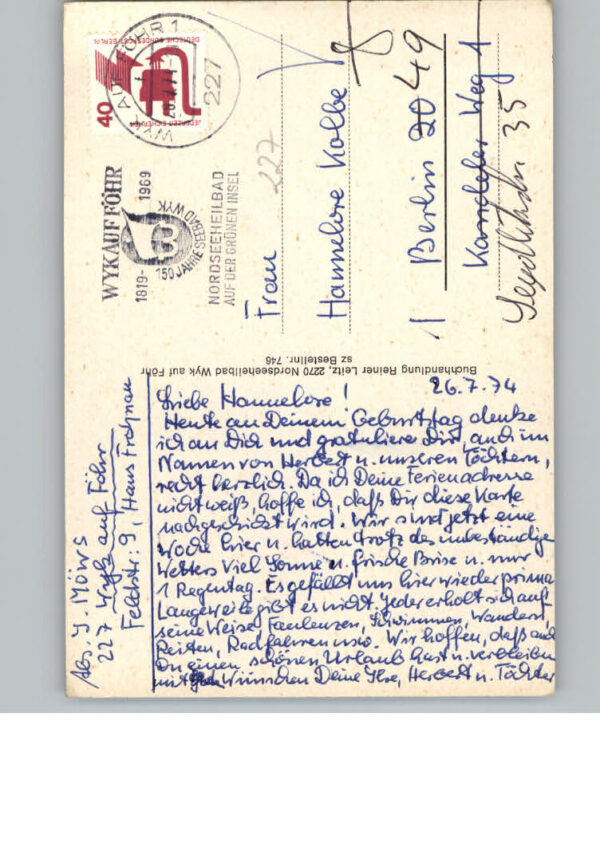 Liebe Hannelore!
26.7.74
Heute an Deinem Geburtstag denke
ich an Dich und gratuliere Dir, auch im
Namen von Herbert u. unseren Töchtern,
recht herzlich. Da ich Deine Ferienadresse
nicht weiß, hoffe ich, daß Dir diese Karte
nachgeschickt wird. Wir sind jetzt eine
Woche hier u. hatten trotz des unbeständigen
Wetters viel Sonne u. frische Brise u. nur
1 Regentag. Es gefällt uns hier wieder prima
Langeweile gibt es nicht. Jeder erholt sich auf
seine Weise. Faulenzen, Schwimmen, Wandern,
Reiten, Radfahren usw. Wir hoffen, daß auch
Du einen schönen Urlaub hast u. verbleiben
mit Wünschen Deine Herbert u. Töchter
Abs.: Y. Möws
227 Wyk auf Föhr
Feldstr. 9, Haus
Frau
Hannelore Kolbe
1 Berlin 2049
Weg 1
35
227
WYK AUF FÖHR
1819-1969
150 JAHRE SEEBAD WYK
NORDSEEHEILBAD
AUF DER GRÜNEN INSEL
WYK AUF FÖHR 1
227
DEUTSCHE BUNDESPOST BERLIN
40
Buchhandlung Reiner Leitz, 2270 Nordseeheilbad Wyk auf Föhr
sz Bestellnr. 746